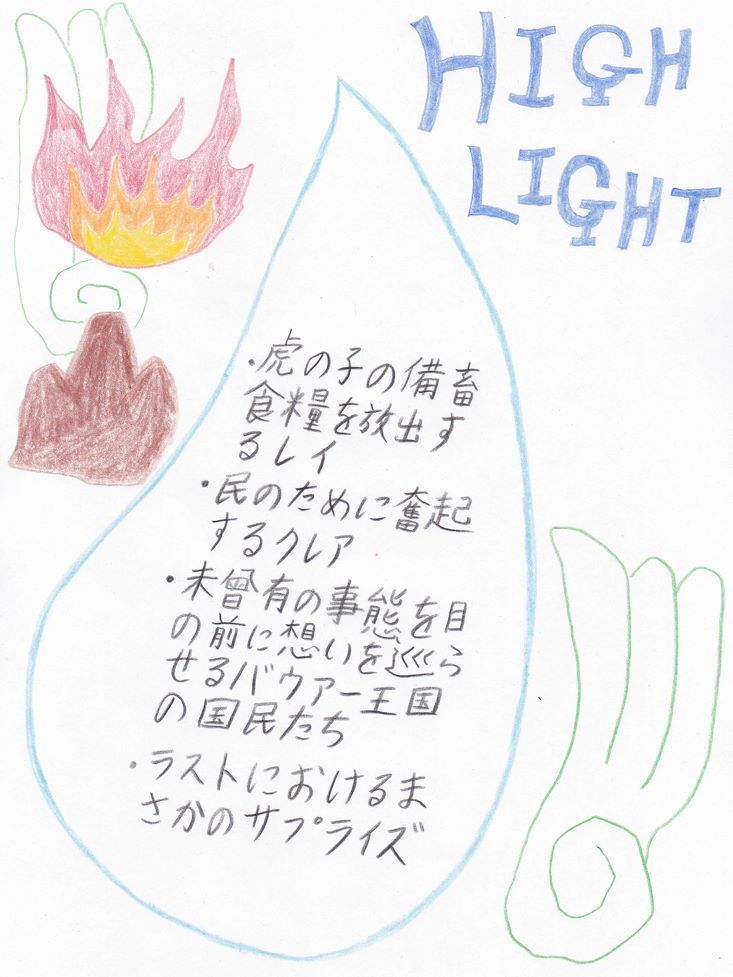 HIGH
LIGHT
・虎の子の備畜
食糧を放出す
るレイ
・民のために奮起
するクレア
・未曾有の事態を目
の前に想いを巡ら
せるバウアー王国
の国民たち
・ラストにおけるま
さかのサプライズ